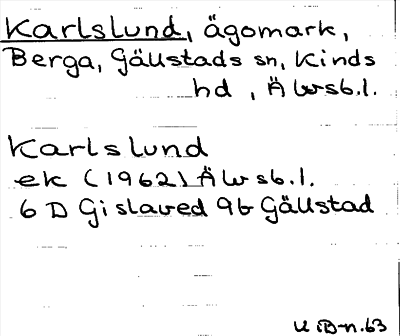 Karlslund, ägomark,
Berga, Gällstads sn, Kinds
hd, Älvsb.l.
Karlslund
ek (1962) Älvsb.l.
6 D Gislaved 9b Gällstad